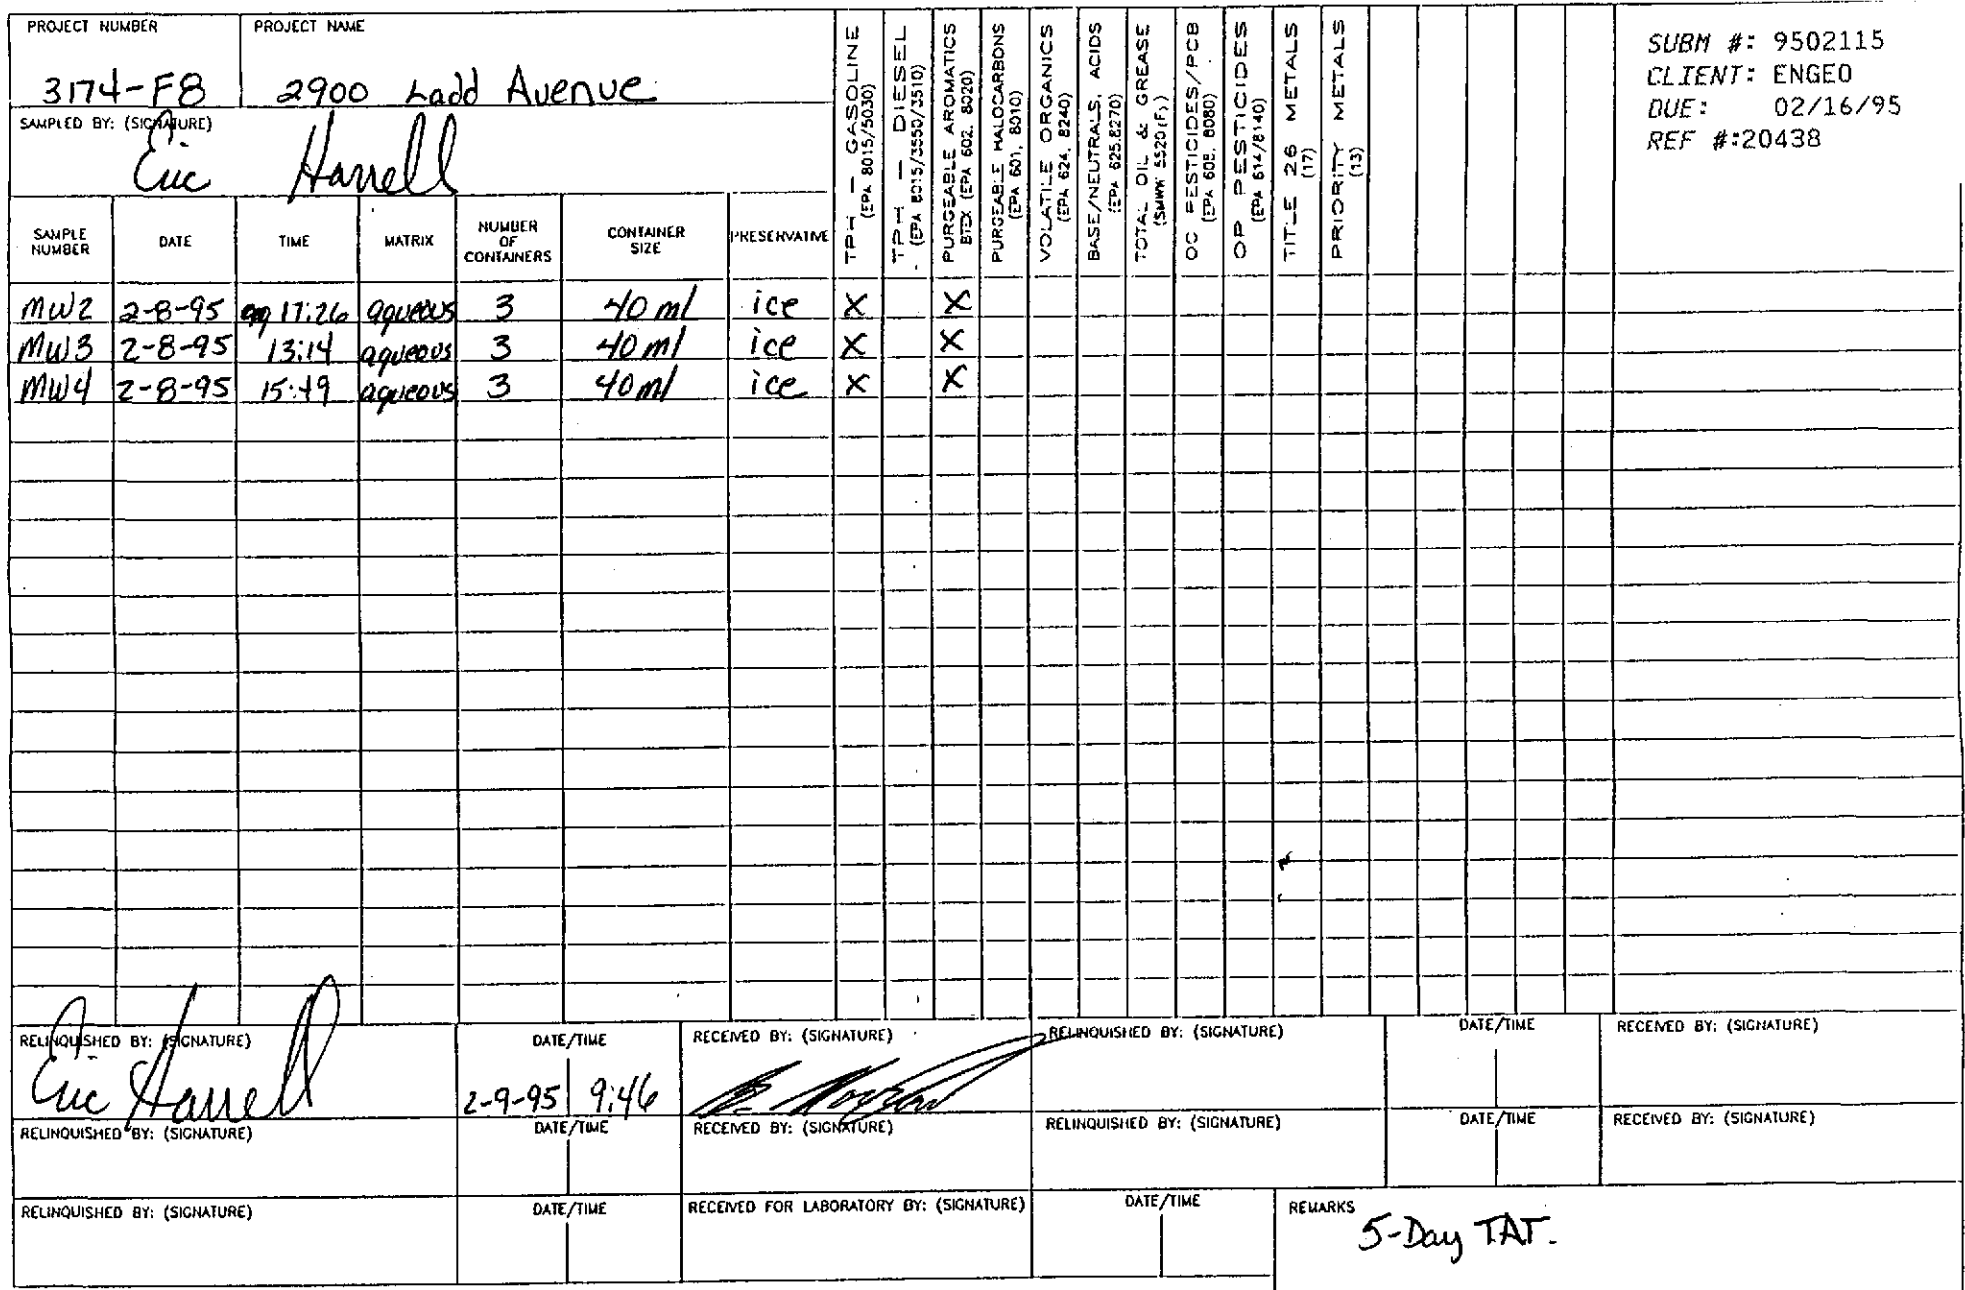 PROJECT NUMBER PROJECT NAME
3174-F8 2900 Ladd Avenue
SAMPLED BY: (SIGNATURE)
Eric Harrell
SUBM #: 9502115
CLIENT: ENGEO
DUE: 02/16/95
REF #:20438
SAMPLE NUMBER DATE TIME MATRIX NUMBER OF CONTAINERS CONTAINER SIZE PRESERVATIVE
TPH — GASOLINE
(EPA 8015/5030)
TPH — DIESEL
(EPA 8015/3550/3510)
PURGEABLE AROMATICS
BTEX (EPA 602, 8020)
PURGEABLE HALOCARBONS
(EPA 601, 8010)
VOLATILE ORGANICS
(EPA 624, 8240)
BASE/NEUTRALS, ACIDS
(EPA 625,8270)
TOTAL OIL & GREASE
(SMWW 5520(F),)
OC PESTICIDES/PCB
(EPA 608, 8080)
OP PESTICIDES
(EPA 614/8140)
TITLE 26 METALS
(17)
PRIORITY METALS
(13)
MW2 2-8-95 17:26 aqueous 3 40 ml ice X X
MW3 2-8-95 13:14 aqueous 3 40 ml ice X X
MW4 2-8-95 15:49 aqueous 3 40 ml ice X X
RELINQUISHED BY: (SIGNATURE) DATE/TIME RECEIVED BY: (SIGNATURE) RELINQUISHED BY: (SIGNATURE) DATE/TIME RECEIVED BY: (SIGNATURE)
Eric Harrell 2-9-95 9:46
RELINQUISHED BY: (SIGNATURE) DATE/TIME RECEIVED BY: (SIGNATURE) RELINQUISHED BY: (SIGNATURE) DATE/TIME RECEIVED BY: (SIGNATURE)
RELINQUISHED BY: (SIGNATURE) DATE/TIME RECEIVED FOR LABORATORY BY: (SIGNATURE) DATE/TIME REMARKS
5-Day TAT.